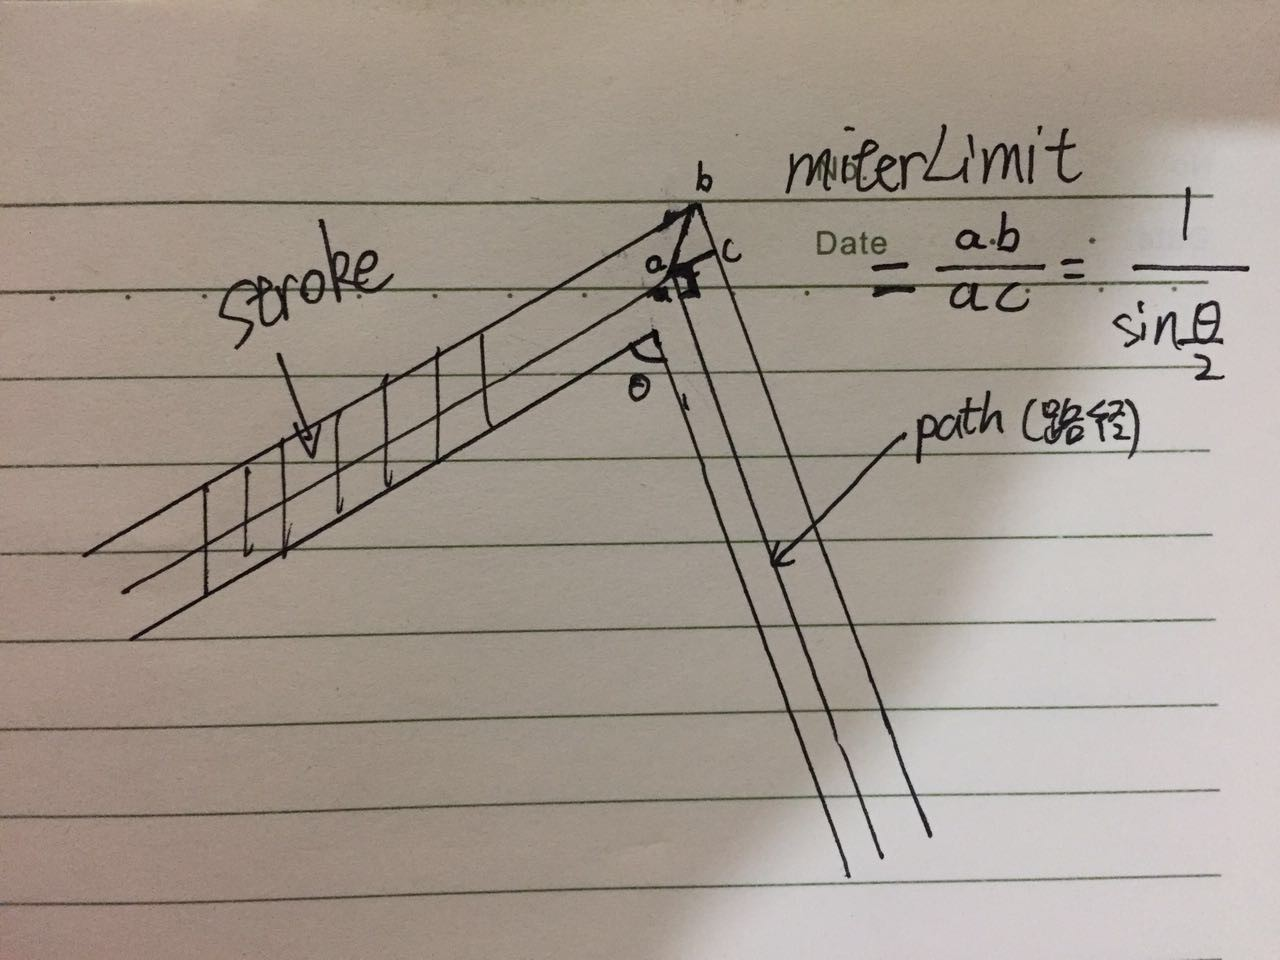 b
miterLimit
Date
= a.b / ac = 1 / sin θ/2
a
c
stroke
θ
path (路径)